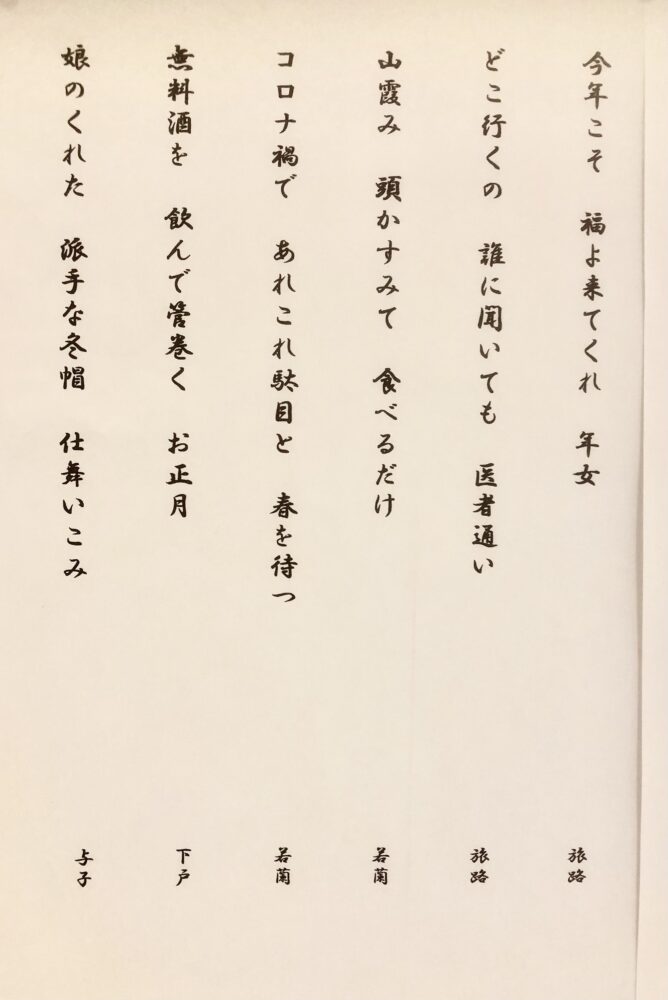 今年こそ　福よ来てくれ　年女　旅路
どこ行くの　誰に聞いても　医者通い　旅路
山霞み　頭かすみて　食べるだけ　若蘭
コロナ禍で　あれこれ駄目と　春を待つ　若蘭
無料酒を　飲んで管巻く　お正月　下戸
娘のくれた　派手な冬帽　仕舞いこみ　与子